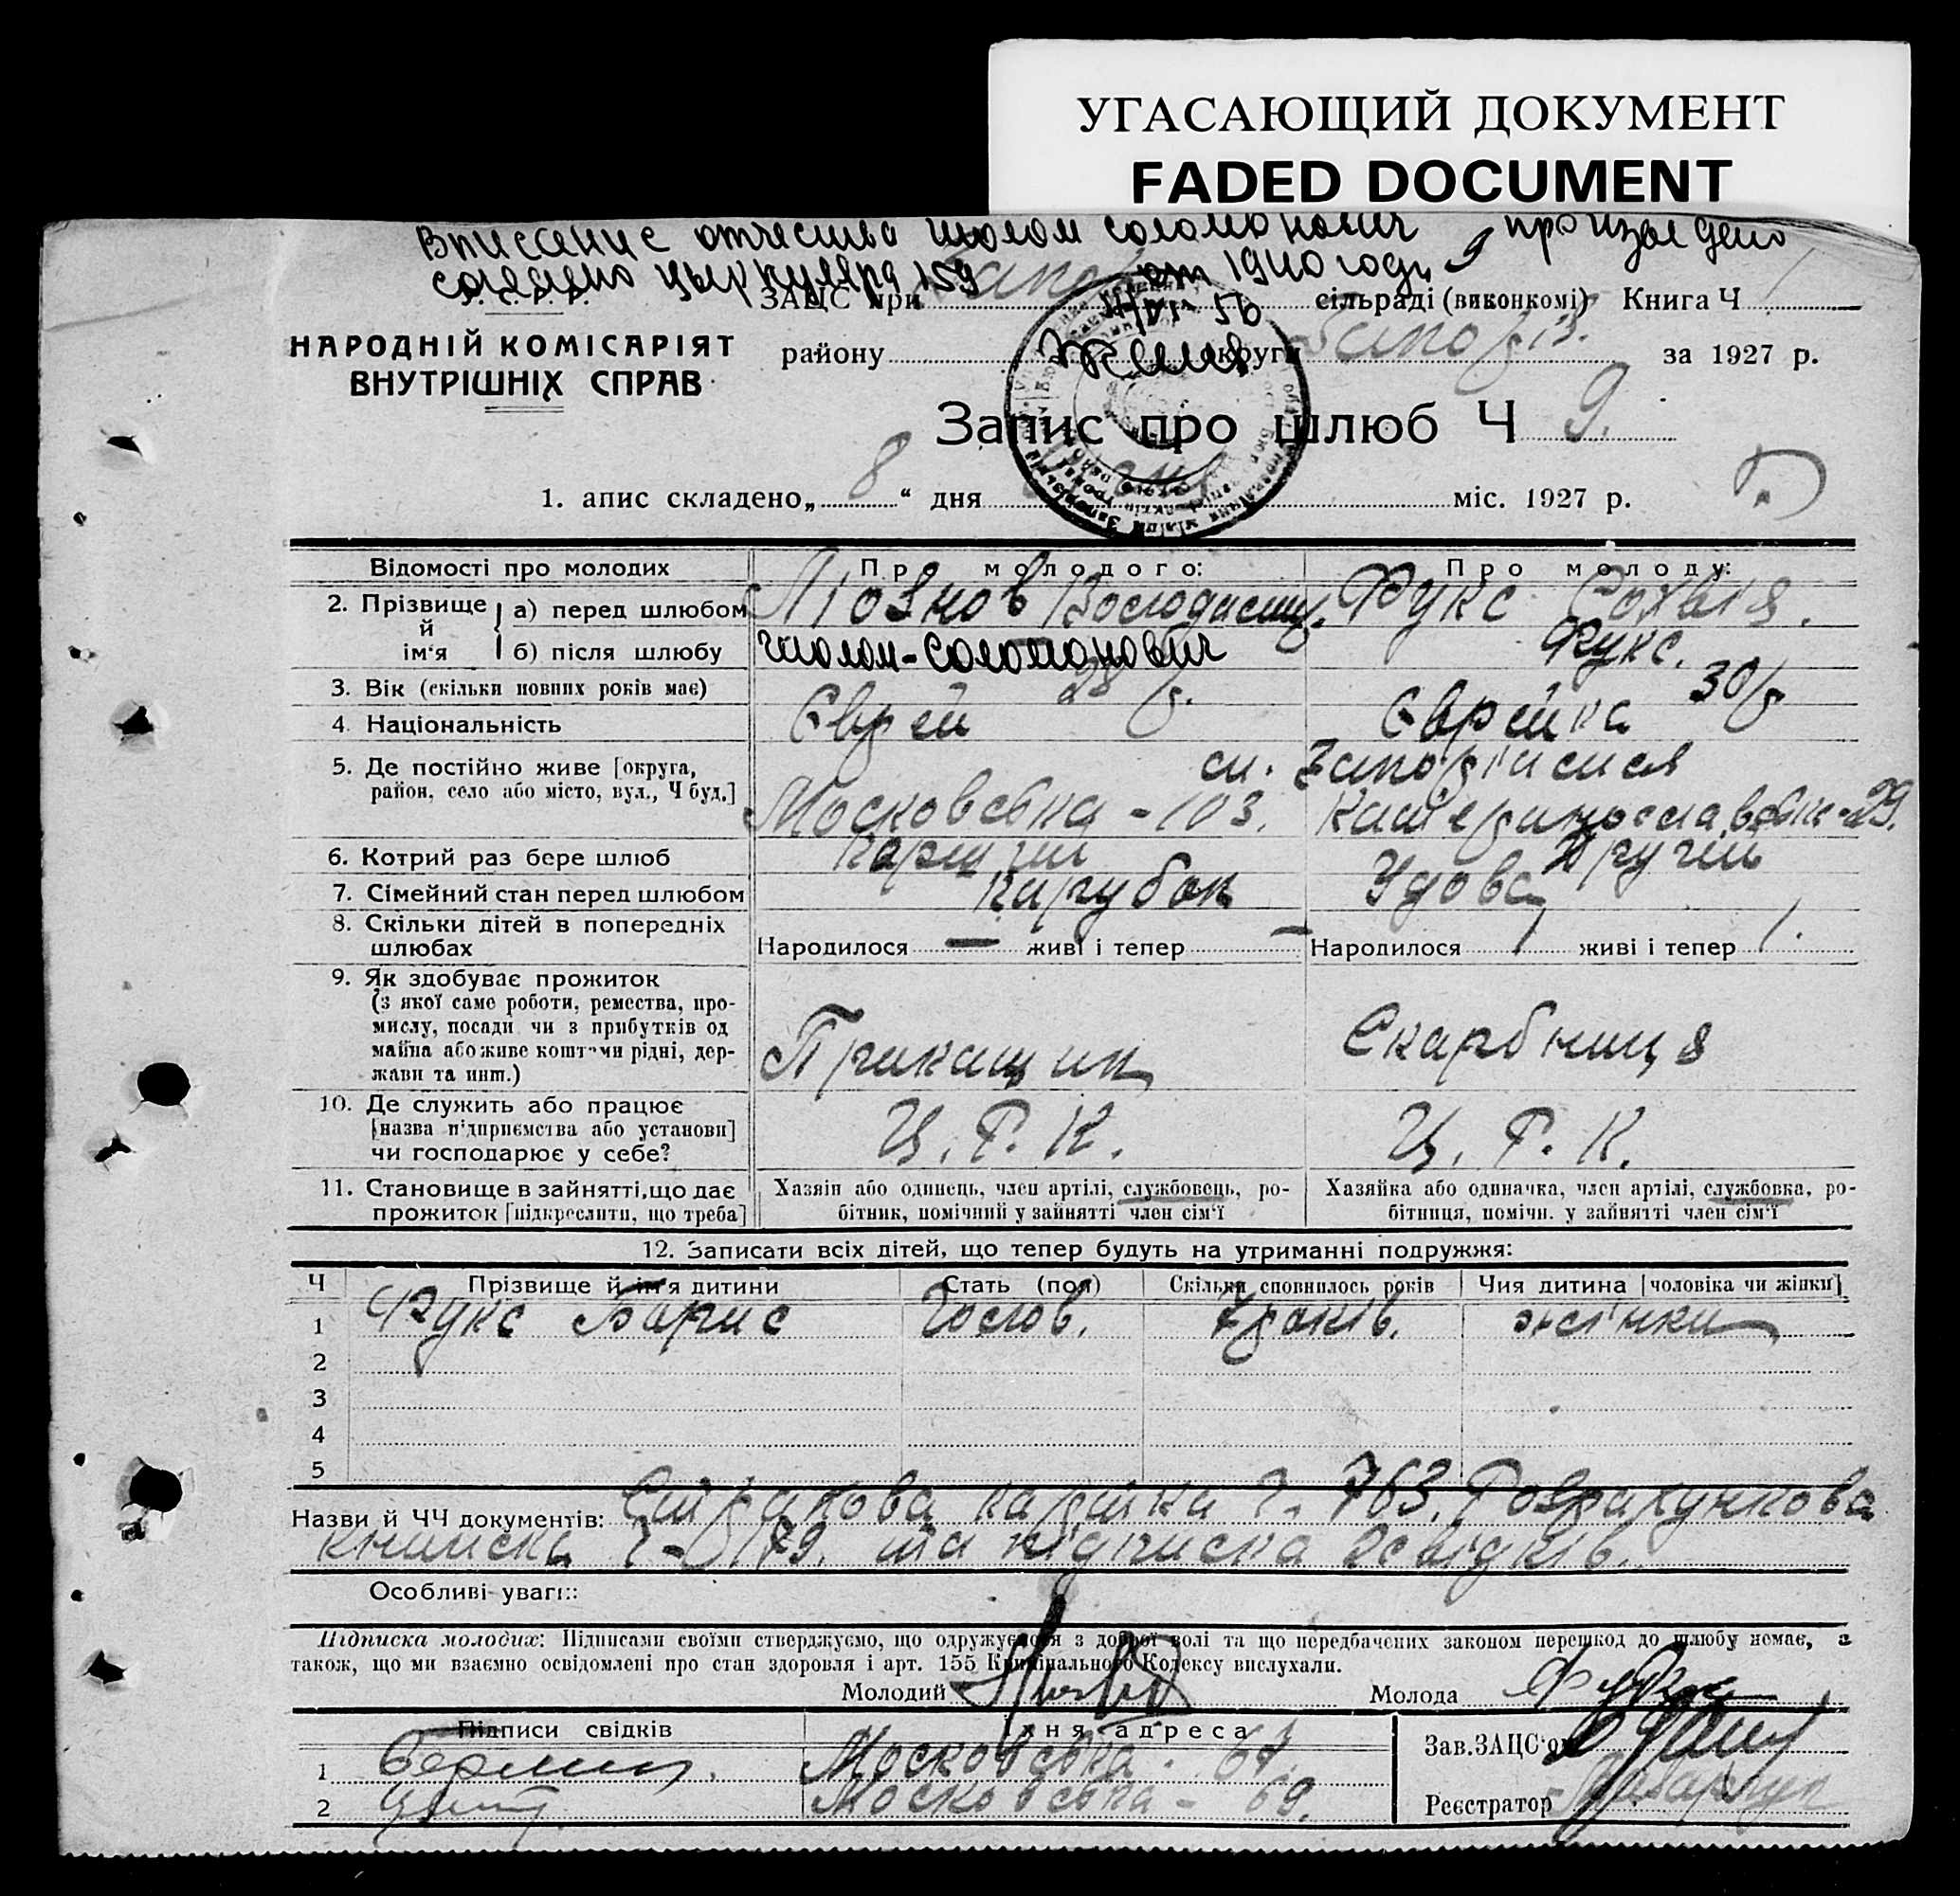 УГАСАЮЩИЙ ДОКУМЕНТ
FADED DOCUMENT
Внесение отчества Шолом Соломонович произведено
согласно циркуляра 159 от 1940 года
У. С. Р. Р.
ЗАЦС при сільраді (виконкомі) Книга Ч
НАРОДНІЙ КОМІСАРІЯТ
ВНУТРІШНІХ СПРАВ
району округи Запоріз. за 1927 р.
Запис про шлюб Ч 9.
1. апис складено „ 8 “ дня міс. 1927 р.
Відомості про молодих Про молодого: Про молоду:
2. Прізвище й ім'я а) перед шлюбом Володимир. Фукс Софія.
б) після шлюбу Шолом-Соломонович Фукс.
3. Вік (скільки повних років має) 28 р. 30 р
4. Національність Єврей Єврейка
5. Де постійно живе [округа, м. Запоріжжя
район, село або місто, вул., Ч буд.] Московська - 103. Катеринославська - 29.
6. Котрий раз бере шлюб Перший Другий
7. Сімейний стан перед шлюбом Парубок Удова
8. Скільки дітей в попередніх
шлюбах Народилося — живі і тепер — Народилося 1 живі і тепер 1.
9. Як здобуває прожиток
(з якої саме роботи, ремества, про-
мислу, посади чи з прибутків од
майна або живе коштами рідні, дер-
жави та инш.) Прикащик Скарбниця
10. Де служить або працює
[назва підприємства або установи] Ц. Р. К. Ц. Р. К.
чи господарює у себе?
11. Становище в зайнятті, що дає Хазяін або одинець, член артілі, службовець, ро- Хазяйка або одиначка, член артілі, службовка, ро-
прожиток [підкреслити, що треба] бітник, помічний у зайнятті член сім'ї бітниця, помічн. у зайнятті член сім'ї
12. Записати всіх дітей, що тепер будуть на утриманні подружжя:
Ч Прізвище й ім'я дитини Стать (пол) Скільки сповнилось років Чия дитина [чоловіка чи жінки]
1 Фукс Борис Чолов. 7 років. жінки
2
3
4
5
Назви й ЧЧ документів: Страхова картка ч. 763. Розрахункова
книжка ч- та підписка освідків.
Особливі уваги:
Підписка молодих: Підписами своїми стверджуємо, що одружуємося з доброї волі та що передбачених законом перешкод до шлюбу немає, а
також, що ми взаємно освідомлені про стан здоровля і арт. 155 Кримінального Кодексу вислухали.
Молодий Молода Фукс
Підписи свідків Їхня адреса
Зав. ЗАЦС'ом
1 Московська - 67.
2 Московська - 69.
Реєстратор